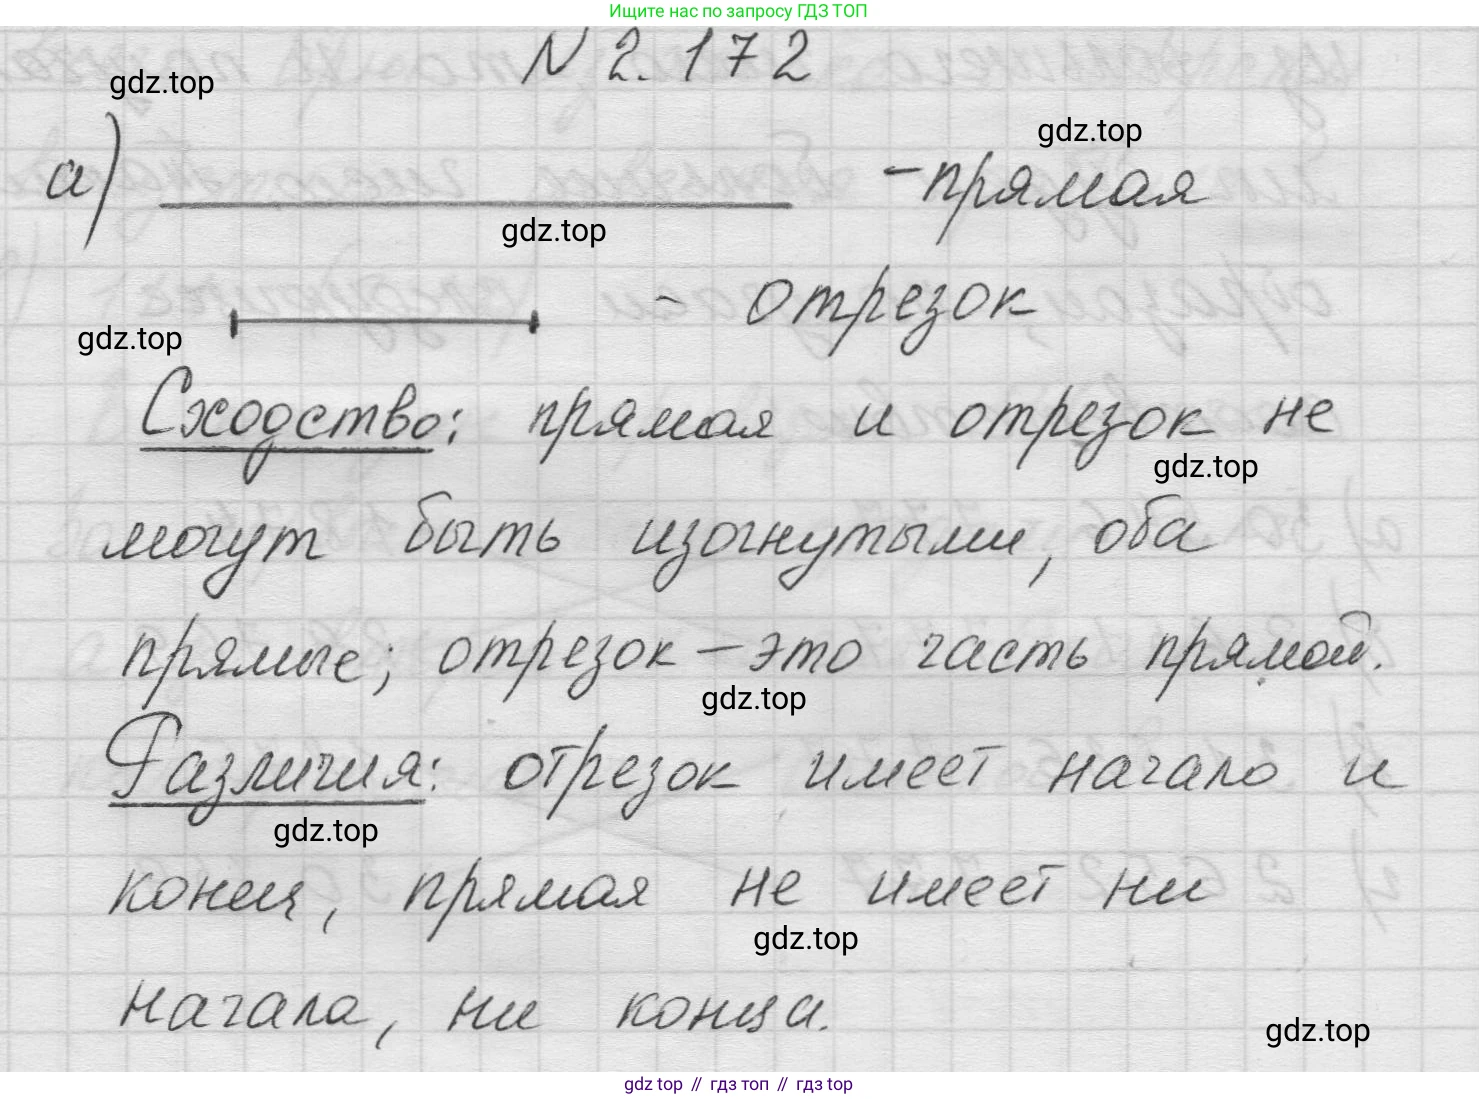 Ищите нас по запросу ГДЗ ТОП
N 2.172
gdz.top
gdz.top
а) -прямая
gdz.top
- отрезок
gdz.top
Сходство: прямая и отрезок не
gdz.top
могут быть изогнутыми, оба
прямые; отрезок – это часть прямой.
gdz.top
Различия: отрезок имеет начало и
gdz.top
конец, прямая не имеет ни
gdz.top
начала, ни конца.
gdz.top
gdz top // гдз топ // гдз top